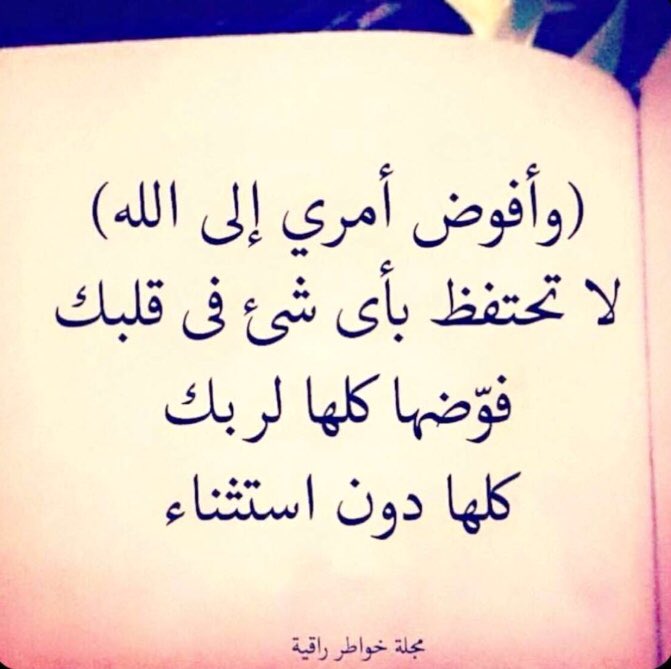 (وأفوض أمري إلى الله)
لا تحتفظ بأى شئ فى قلبك
فوّضها كلها لربك
كلها دون استثناء
مجلة خواطر راقية